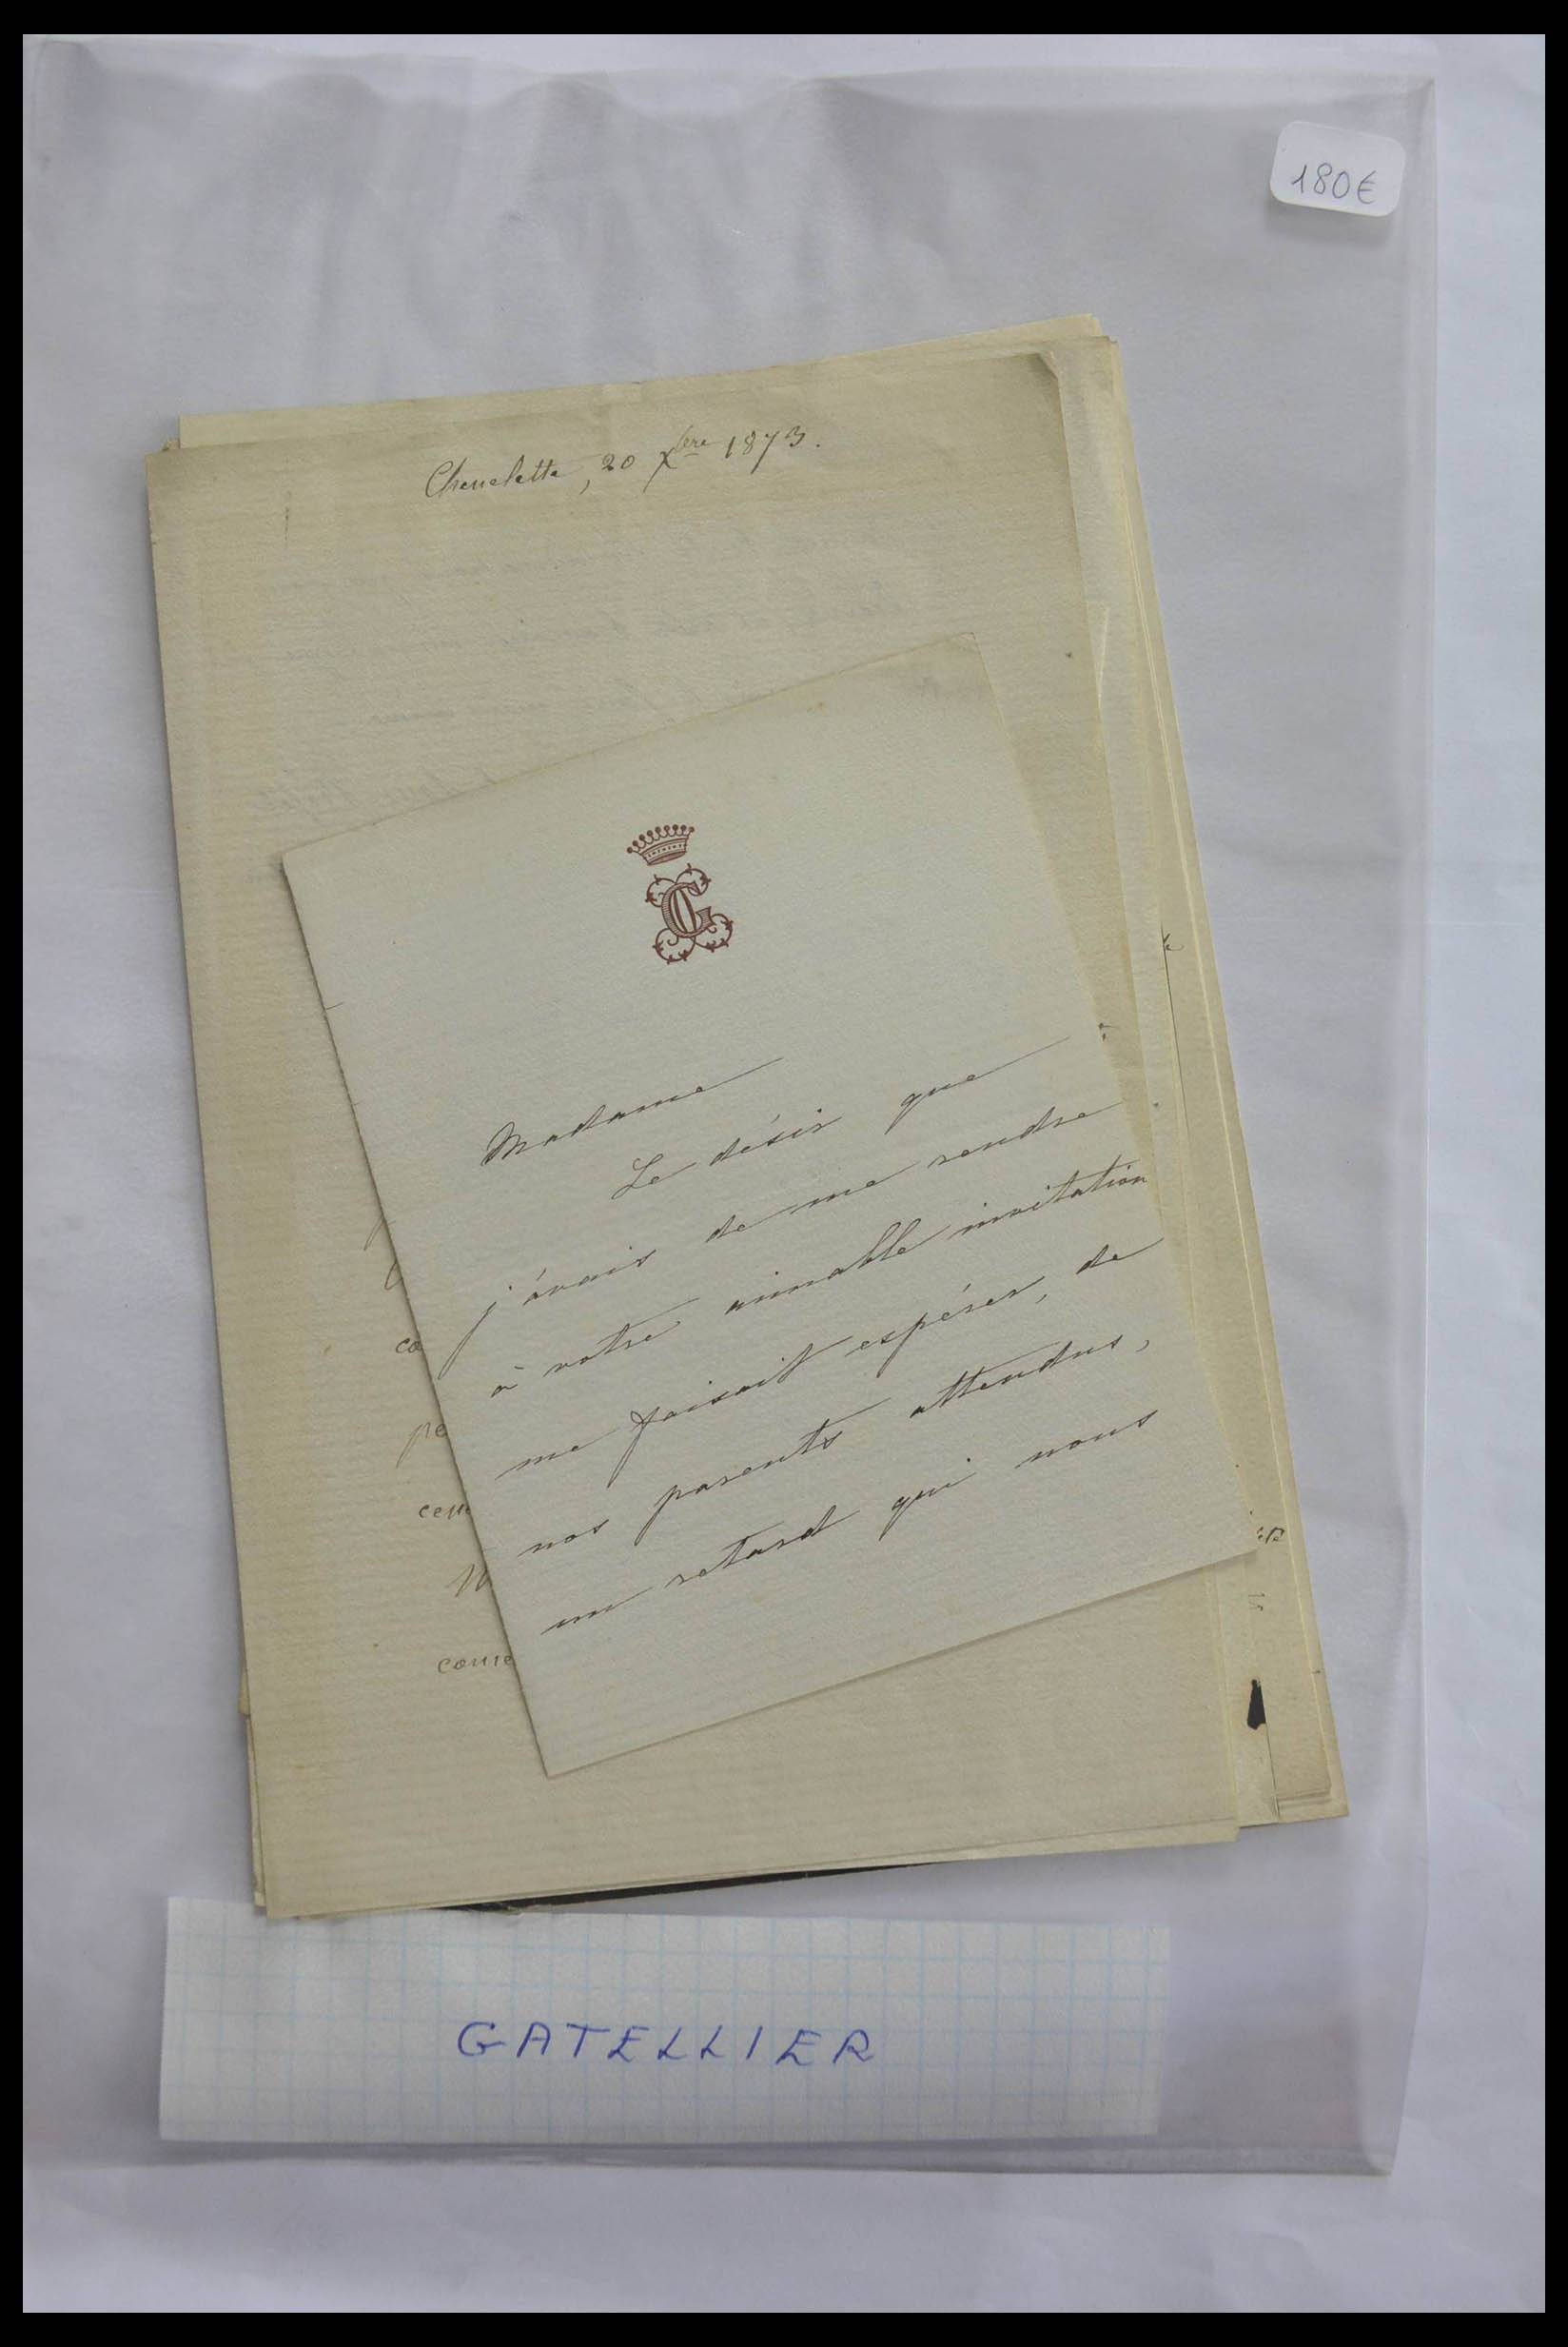 180€
Chenelette, 20 Xbre 1873.
Madame
Le désir que
j'avais de me rendre
à votre aimable invitation
me faisait espérer, de
nos parents attendus,
un retard qui nous
co
pe
conse
GATELLIER